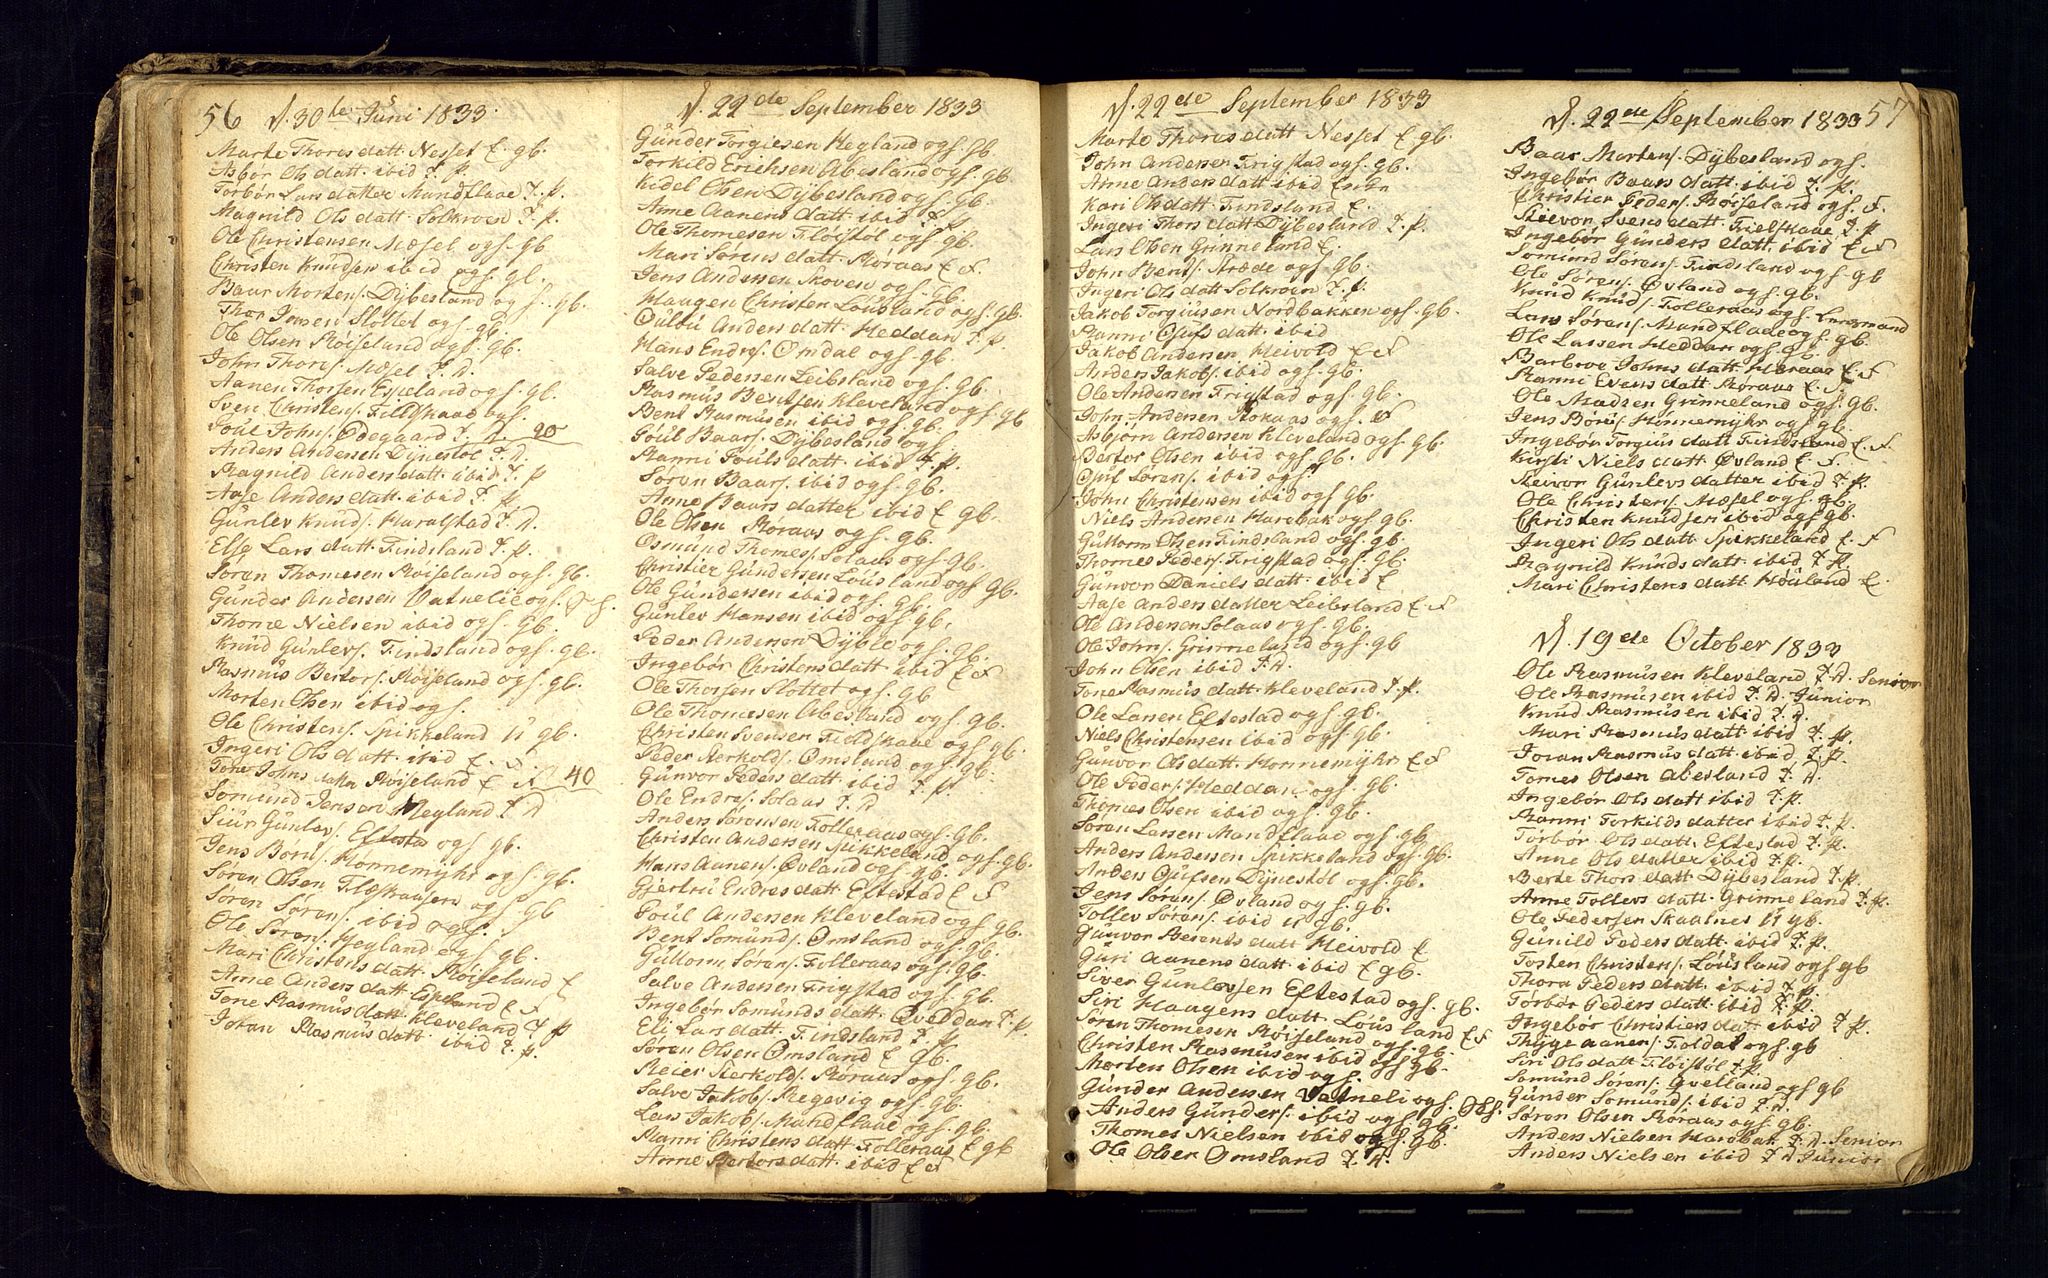 56 d. 30te Juni 1833.
Marte Thores datt Nesset E. gb.
Asbør Ols datt ibid T. p.
Torbør Lars datter Mandflaae T. p.
Magnild Ols datt Solkroen T. p.
Ole Christensen Mæsel ogf. gb
Christen Knudsen ibid ogf. gb.
Baar Mortens. Dybesland ogf. gb.
Thor Jensen Slottet ogf. gb.
Ole Olsen Røiseland ogf. gb.
John Thors. Mæsel T. D.
Aanen Thorsen Espeland ogf. gb.
Sven Christens. Fieldskaae ogf.
Poul Johns. Ødegaard T. D. 20
Anders Andersen Dynestøl T. D.
Ragnild Anders datt. ibid T. p
Aase Anders datt. ibid T. p
Gunlev Knuds. Haralstad T. D.
Else Lars datt. Findsland T. p.
Søren Thomesen Røiseland ogf. gb.
Gunder Andersen Vatnelie ogf.
Thome Nielsen ibid ogf. gb.
Knud Gunlevs. Findsland ogf. gb.
Rasmus Bertors. Røiseland ogf. gb.
Morten Olsen ibid ogf.
Ole Christens. Spikkeland 11 gb.
Ingeri Ols datt ibid E. F.
Tone Johns datter Røiseland E F 40
Somund Jensen Hegland T. D
Siur Gunlevs. Eftestad ogf gb.
Jens Børus. Honnemyhr ogf. gb.
Søren Olsen Flæskaasen ogf. gb
Søren Sørens. ibid ogf.
Ole Sørens. Hegland ogf. gb.
Mari Christens datt. Røiseland E
Anne Anders datt Espeland E. F
Tone Rasmus datt Kleveland T. p
Joran Rasmus datt. ibid T. p.
d. 22de September 1833
Gunder Torgiesen Hegland ogf. gb.
Torkild Erichsen Abesland ogf. gb
Kidel Olsen Dybesland ogf. gb.
Anne Aanens datt ibid T. p
Ole Thomesen Fløistøl ogf gb.
Mari Sørens datt. Røraas E F.
Jens Andersen Skoven ogf. gb.
Haagen Christen Lousland ogf. gb
Gulbu Anders datt. Heddan T. p.
Hans Endres. Omdal ogf. gb
Salve Pedersen Leibsland ogf. gb.
Rasmus Bentsen Kleveland ogf. gb
Bent Rasmusen ibid ogf. gb.
Poul Baars. Dybesland ogf.
Ranni Pouls datt. ibid T. p.
Søren Baars. ibid ogf. gb.
Anne Baars datter ibid E gb.
Ole Olsen Røraas ogf. gb.
Osmund Thomes. Solaas ogf. gb.
Christier Gundersen Lousland ogf gb.
Ole Gundersen ibid ogf. gb.
Gunlev Hansen ibid ogf gb.
Peder Andersen Dyblie ogf. gb.
Ingebør Christens datt ibid E F
Ole Thorsen Slottet ogf. gb
Ole Thomesen Abesland ogf. gb.
Christen Svensen Fieldskaae ogf gb
Peder Rerkolds. Omsland ogf gb.
Gunvor Peders datt. ibid T. p.
Ole Endres. Solaas T. D
Anders Sørensen Folleraas ogf. gb.
Christen Andersen Spikkeland ogf. gb
Hans Aanens. Øvland ogf. gb.
Gjertru Endres datt Eftestad E F
Poul Andersen Kleveland ogf gb.
Bent Somunds. Omsland ogf. gb.
Guttorm Sørens. Folleraas ogf. gb.
Salve Andersen Frigstad ogf. gb.
Ingebør Somunds datt. Qveddan T. p.
Eli Lars datt. Findsland T. p.
Søren Olsen Omsland E gb.
Reier Rerkolds. Røraas ogf. gb.
Salve Jakobs. Regevig ogf. gb.
Lars Jakobs. Mandflaae ogf. gb.
Ranni Christens datt. Folleraas E gb
Anne Bertors datt. ibid E F
d. 22de September 1833
Marte Thores datt Nesset E gb.
John Andersen Frigstad ogf. gb.
Anne Anders datt ibid
Kari Ols datt Findsland E.
Ingeri Thors datt Dybesland T. p.
Lars Olsen Grimeland E.
John Bents. Stræde ogf. gb.
Ingeri Ols datt Solkroen T. p.
Jakob Torgiusen Nordbakken ogf. gb.
Ranni Olufs datt. ibid
Jakob Andersen Heivold E F
Anders Jakobs. ibid ogf. gb.
Ole Andersen Frigstad ogf gb.
John Andersen Rokaas ogf. F
Asbjørn Andersen Kleveland ogf. gb.
Bertor Olsen ibid ogf. gb.
Ouf Sørens. ibid ogf.
John Christensen ibid ogf gb.
Niels Andersen Harebak ogf. gb.
Guttorm Olsen Findsland ogf gb.
Thomes Peders. Frigstad ogf. gb.
Gunvor Daniels datt. ibid E
Aase Anders datter Leibsland E. F
Ole Andersen Solaas ogf. gb.
Ole Johns. Grimeland ogf. gb
John Olsen ibid T. D.
Tone Rasmus datt. Kleveland T. p.
Ole Larsen Eftestad ogf. gb.
Niels Christensen ibid ogf. gb.
Gunvor Ols datt. Honnemyhr E F
Ole Peders. Heddan ogf. gb.
Thomes Olsen ibid ogf. gb.
Søren Larsen Mandflaae ogf. gb
Anders Andersen Spikkeland ogf. gb.
Anders Olufsen Dynestøl ogf. gb.
Jens Sørens. Øvland ogf. gb.
Tollev Sørens. ibid 11 gb.
Gunvor Berents datt Heivold E
Guri Aanens datt. ibid E gb.
Siver Gunlevsen Eftestad ogf. gb.
Siri Haagens datt. Lousland E F
Søren Thomesen Røiseland ogf. gb.
Christen Rasmusen ibid ogf gb.
Morten Olsen ibid ogf.
Gunder Andersen Vatneli ogf.
Anders Gunders. ibid ogf. gb.
Thomes Nielsen ibid ogf. gb.
Ole Olsen Omsland T. D.
d. 22de September 1833 57
Baar Mortens. Dybesland ogf.
Ingebør Baars datt. ibid T. p.
Christier Peders. Røiseland ogf. F.
Steevor Svens datt. Fielskaae T. p
Ingebør Gunders datt. ibid E F
Somund Sørens. Findsland ogf. gb
Ole Sørens. Øvland ogf. gb.
Knud Knuds. Folleraas ogf. Lensmand
Lars Sørens. Mandflaae ogf. gb.
Ole Lassen Heddan ogf. gb.
Barbroe Johns datt. Høraas E. F
Ranni Evens datt Røraas E. F.
Ole Madsen Grimeland ogf. gb.
Jens Børus. Honnemyhr ogf gb.
Ingebør Torgius datt Findsland E. F.
Kirsti Niels datt. Øvland E. F.
Reivor Gunlevs datter ibid T. p.
Ole Christens. Mæsel ogf. gb.
Christen Knudsen ibid ogf gb.
Ingeri Ols datt. Spikkeland E. F
Ragnild Knuds datt. ibid T. p.
Mari Christens datt Houland E.
d. 19de October 1833
Ole Rasmusen Kleveland T. D. Senior
Ole Rasmusen ibid T. D. Junior
Knud Rasmusen ibid T. D.
Mari Rasmus datt. ibid T. p.
Joran Rasmus datt. ibid T. p.
Tomes Olsen Abesland T. D.
Ingebør Ols datt ibid T. p.
Ranni Torkilds datter ibid T. p.
Torbør Ols datt. Eftestad T. p.
Anne Ols datter ibid T. p.
Berte Thors datt Dybesland T. p.
Anne Tollevs datt. Grimeland T. p.
Ole Pedersen Skaalnes 11 gb.
Gunild Peders datt. ibid T. p.
Tosten Christens. Lousland ogf gb
Thora Peders datt. ibid T. p.
Torbør Peders datt. ibid T. p.
Ingebør Christiers datt. ibid T. p.
Thyge Aanens. Foldal ogf. gb
Siri Ols datt Fløistøl T. p.
Somund Sørens. Qvelland ogf gb
Gunder Somunds. ibid T. D.
Søren Olsen Røraas ogf gb
Anders Nielsen Harebak T. D. Senior
Anders Nielsen ibid T. D Junior